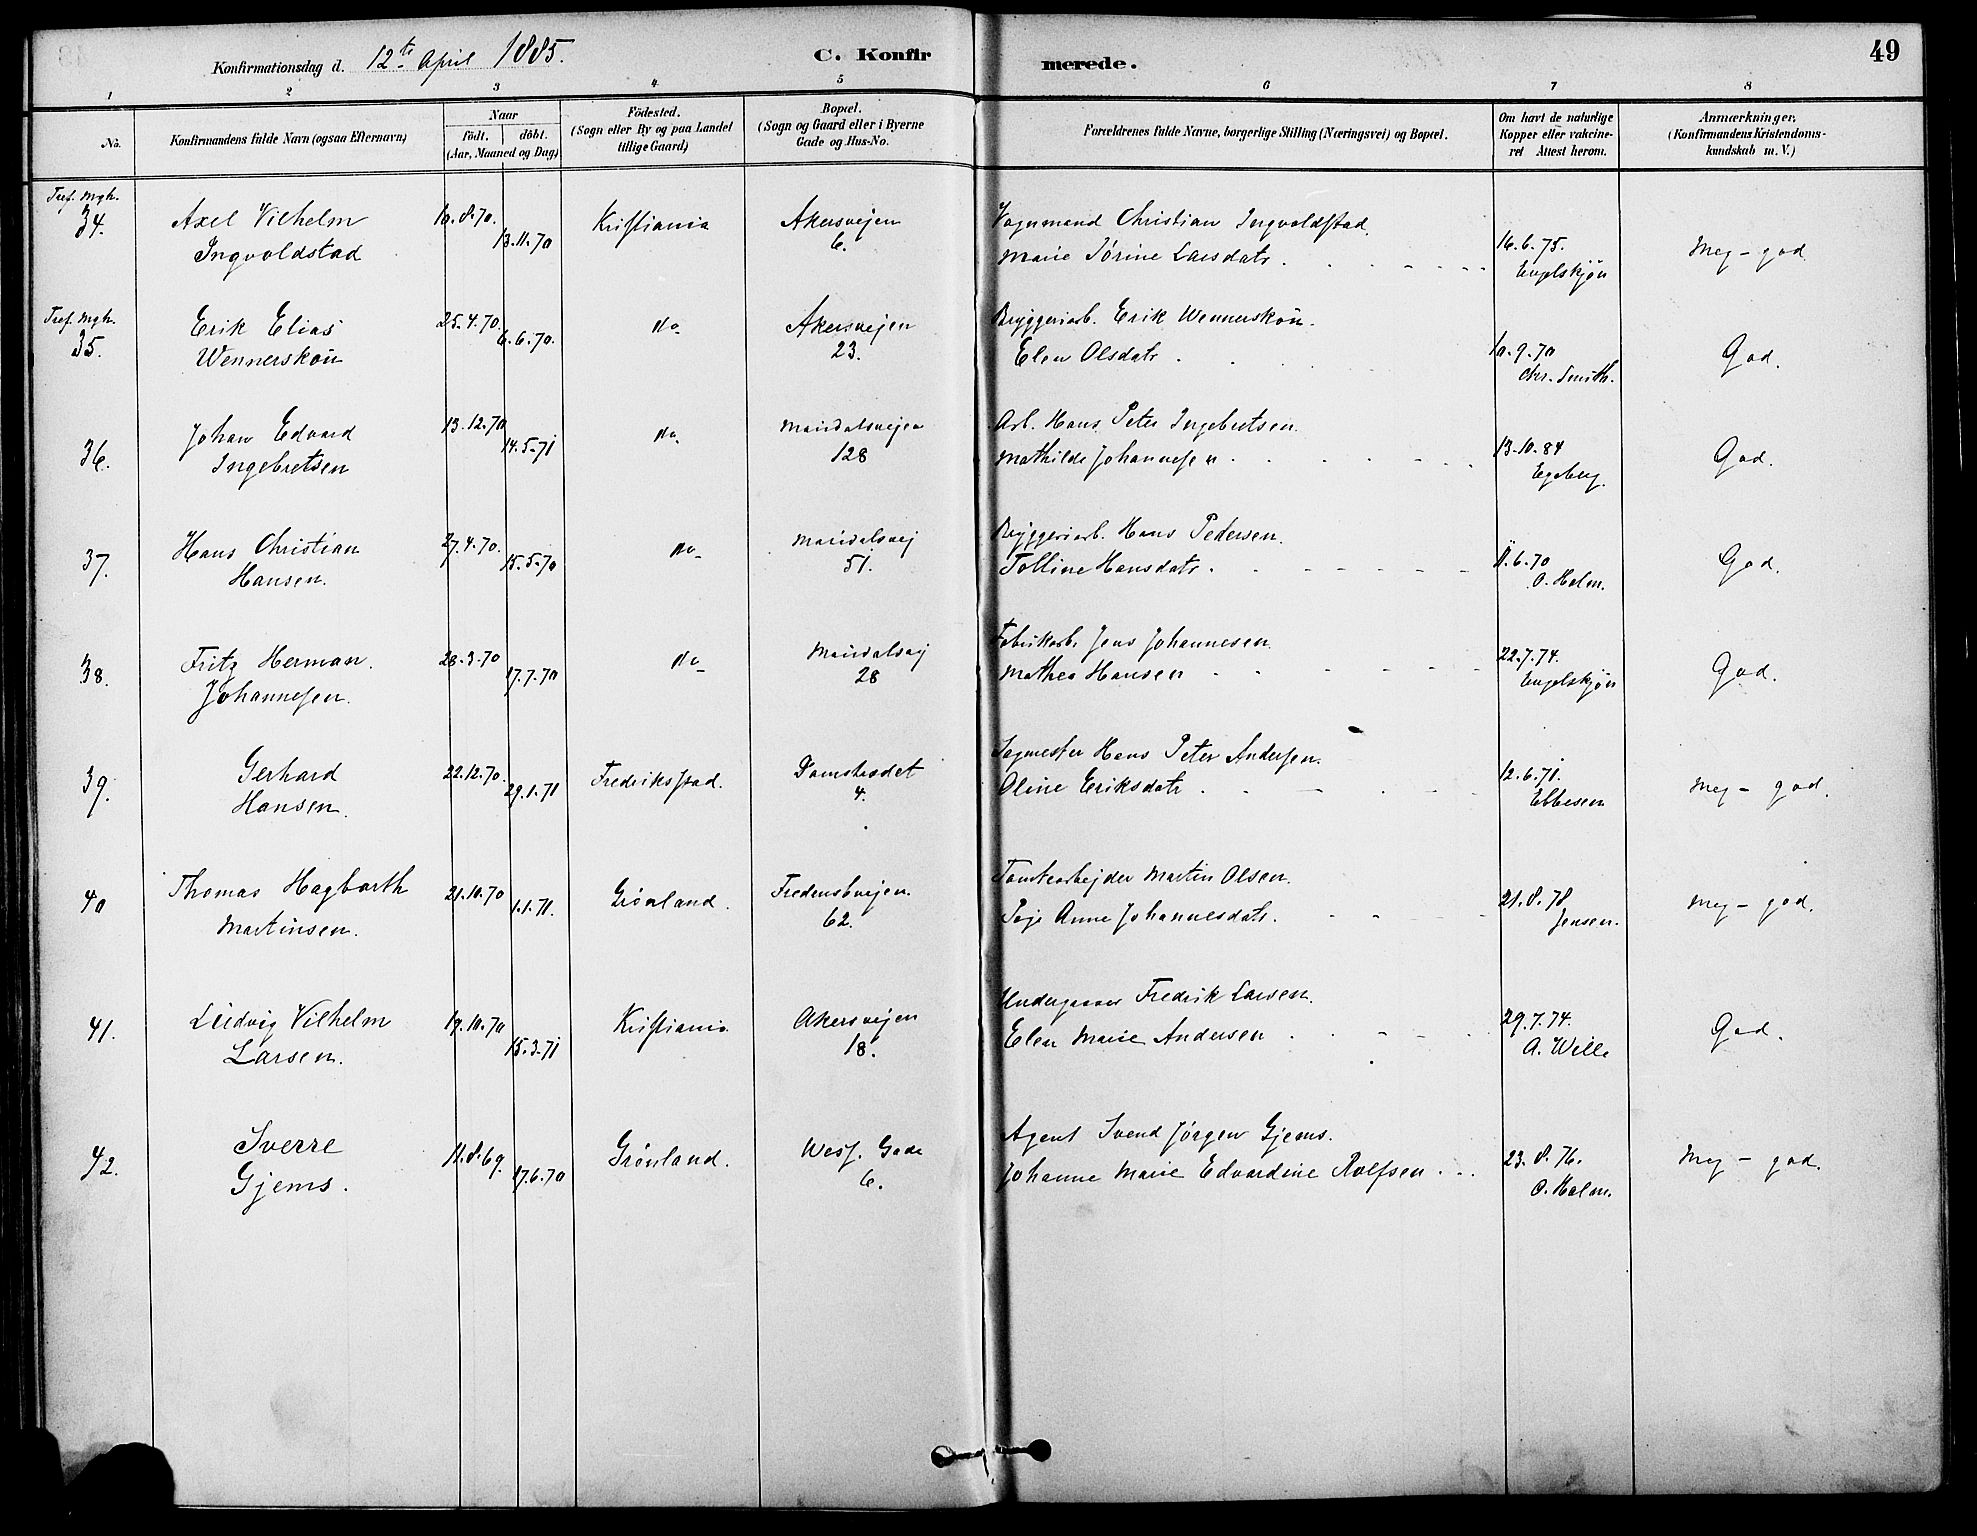 Konfirmationsdag d. 12te April 1885. C. Konfirmerede. 49
1 2 3 4 5 6 7 8
No. Konfirmandens fulde Navn (ogsaa Efternavn) Naar födt. döbt. (Aar, Maaned og Dag) Födested. (Sogn eller By og paa Landet tillige Gaard) Bopæl. (Sogn og Gaard eller i Byerne Gade og Hus-No. Forældrenes fulde Navne, borgerlige Stilling (Næringsvei) og Bopæl. Om havt de naturlige Kopper eller vakcineret Attest herom. Anmærkninger. (Konfirmandens Kristendomskundskab m. V.)
Tref. Mgh.
34. Axel Vilhelm 10.8.70. Kristiania Akersvejen Vognmand Christian Ingvoldstad 16.6.75. Meg - god
Ingvoldstad 13.11.70 6. Marie Sørine Larsdatr. Engelskjøn
Tref. Mgh.
35. Erik Elias 25.4.70. do Akersvejen Bryggeriarb. Erik Wennerskøn. 10.9.70 God.
Wennerskön 6.6.70. 23. Elen Olsdatr Chr. Smith.
36. Johan Edvard 13.12.70 do Maridalsvejen Arb. Hans Peter Ingebretsen. 13.10.84 God.
Ingebretsen 14.5.71 128 Mathilde Johannesen Egeberg.
37. Hans Christian 27.4.70. do Maridalsvej Bryggeriarb. Hans Pedersen. 8.6.70 God.
Hansen. 15.5.70 51. Tolline Hansdatr. O. Holm.
38. Fritz Herman. 28.3.70 do Maridalsvej Fabrikarb. Jens Johannesen. 22.7.74. God.
Johannesen. 17.7.70 28 Mathea Hansen Engelskjøn
39. Gerhard 22.12.70. Fredriksstad. Damstrædet Sagmester Hans Peter Andersen. 12.6.71. Meg - god.
Hansen. 29.1.71 4. Oline Eriksdatr Ebbesen
40 Thomas Hagbarth 21.10.70 Grønland. Fredensbvejen. Tomtearbejder Martin Olsen. 21.8.78 Meg - god.
Martinsen. 1.1.71. 62. Anne Johannesdatr. Jensen.
41. Ludvig Vilhelm 19.10.70 Kristiania Akersvejen Fredrik Larsen. 29.7.74. God.
Larsen. 15.3.71 18. Elen Marie Andersen A. Wille
42. Sverre 11.8.69. Grønland. Wess. Gade Agent Svend Jørgen Gjems. 23.8.76. Meg - god.
Gjems. 17.6.70 6. Johanne Marie Edvardine Rolfsen O. Holm.